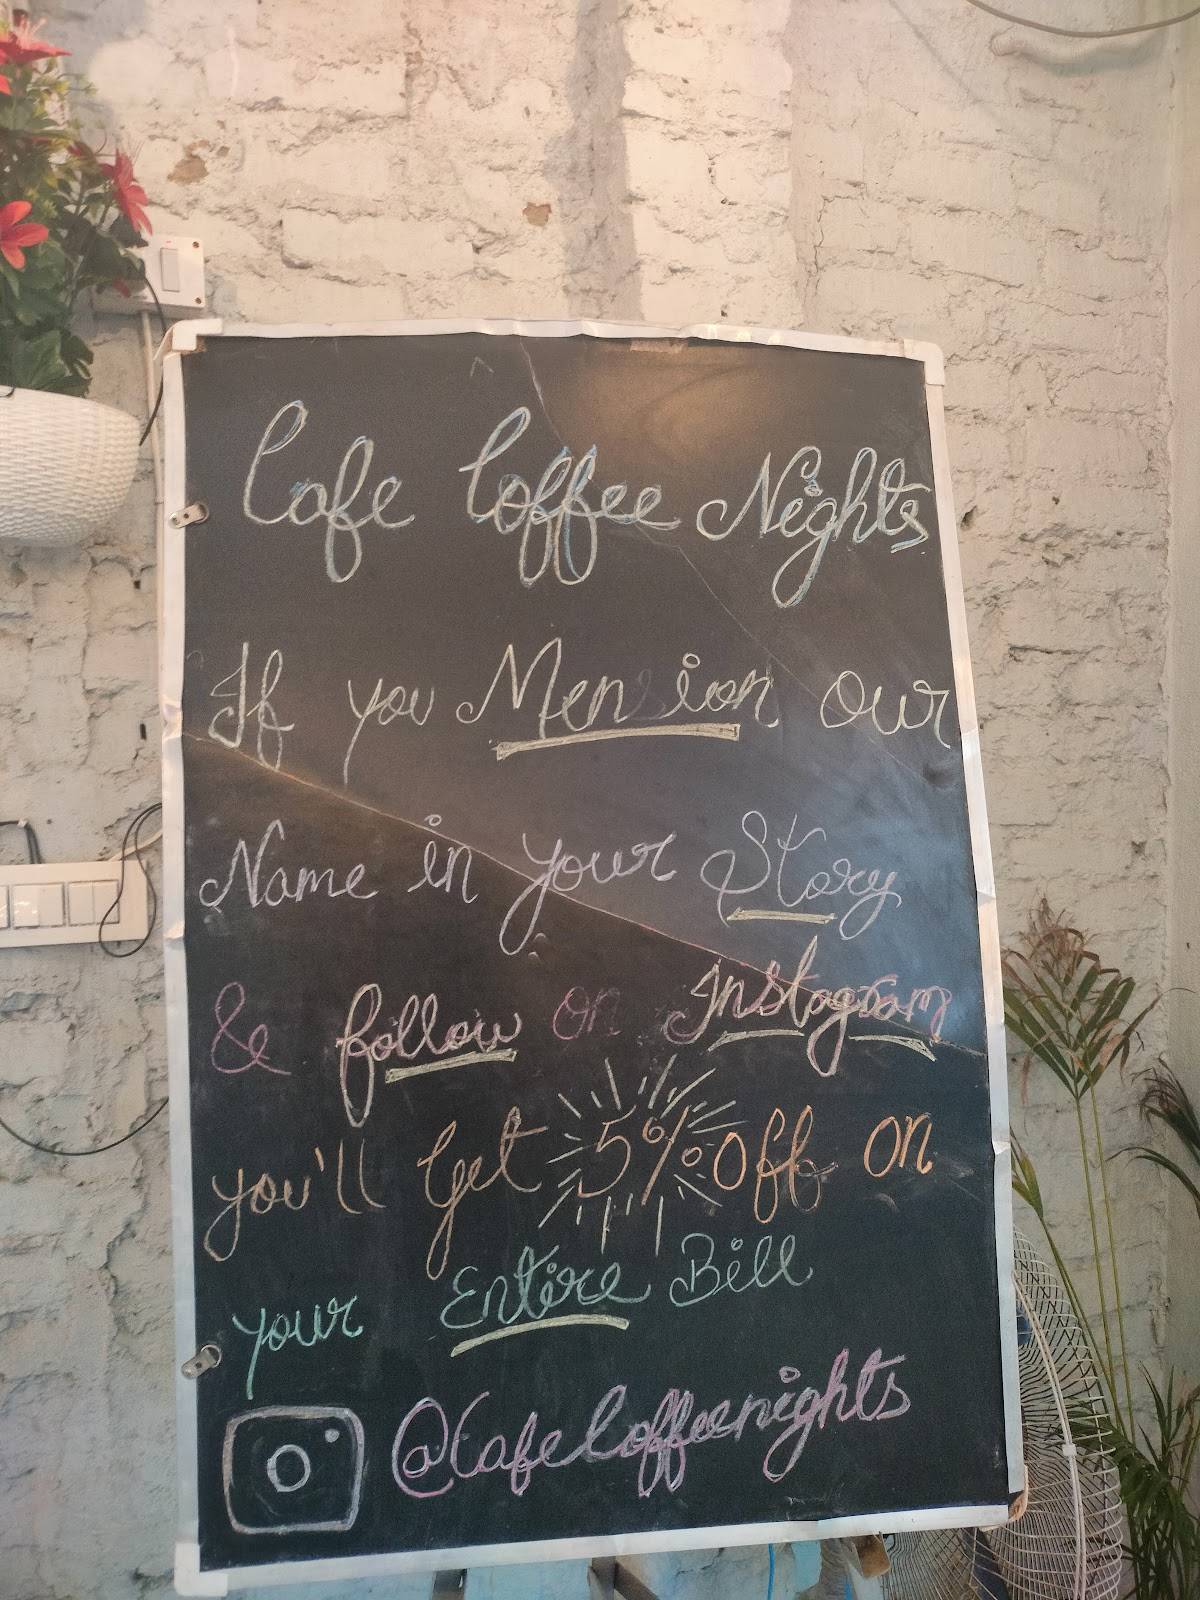 Cafe Coffee Nights
If you Mension our
Name in your Story
& follow on Instagram
you'll Get 5% Off on
your Entire Bill
@Cafecoffeenights